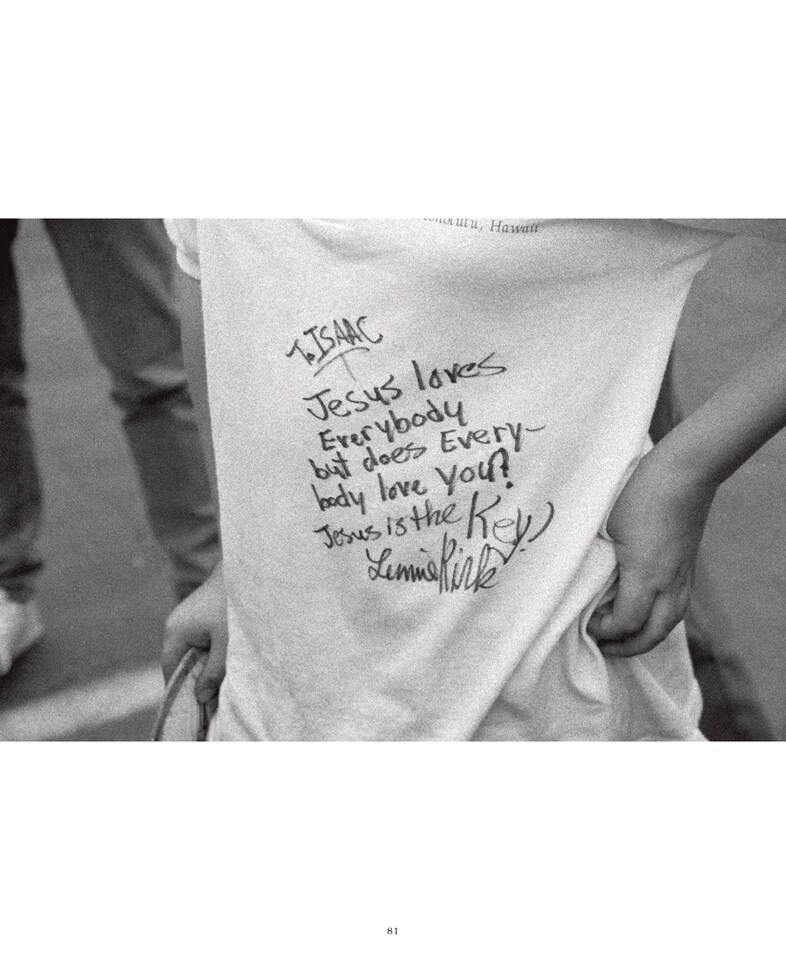 Honolulu, Hawaii
To ISAAC
Jesus loves
Everybody
but does Every-
body love You?
Jesus is the Key!
Lennie Kirk
81